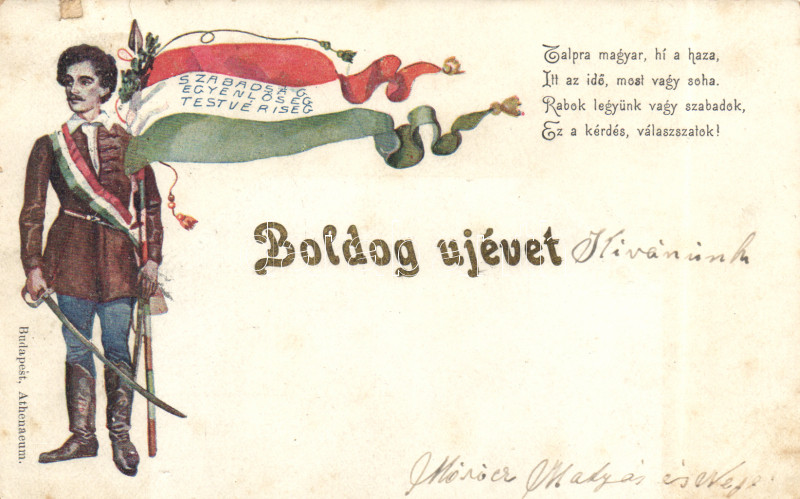 Talpra magyar, hí a haza,
Itt az idő, most vagy soha.
Rabok legyünk vagy szabadok,
Ez a kérdés, válaszszatok!
SZABADSÁG
EGYENLŐSÉG
TESTVÉRISÉG
Boldog ujévet Kivánunk
Budapest, Athenaeum.
Matyás és